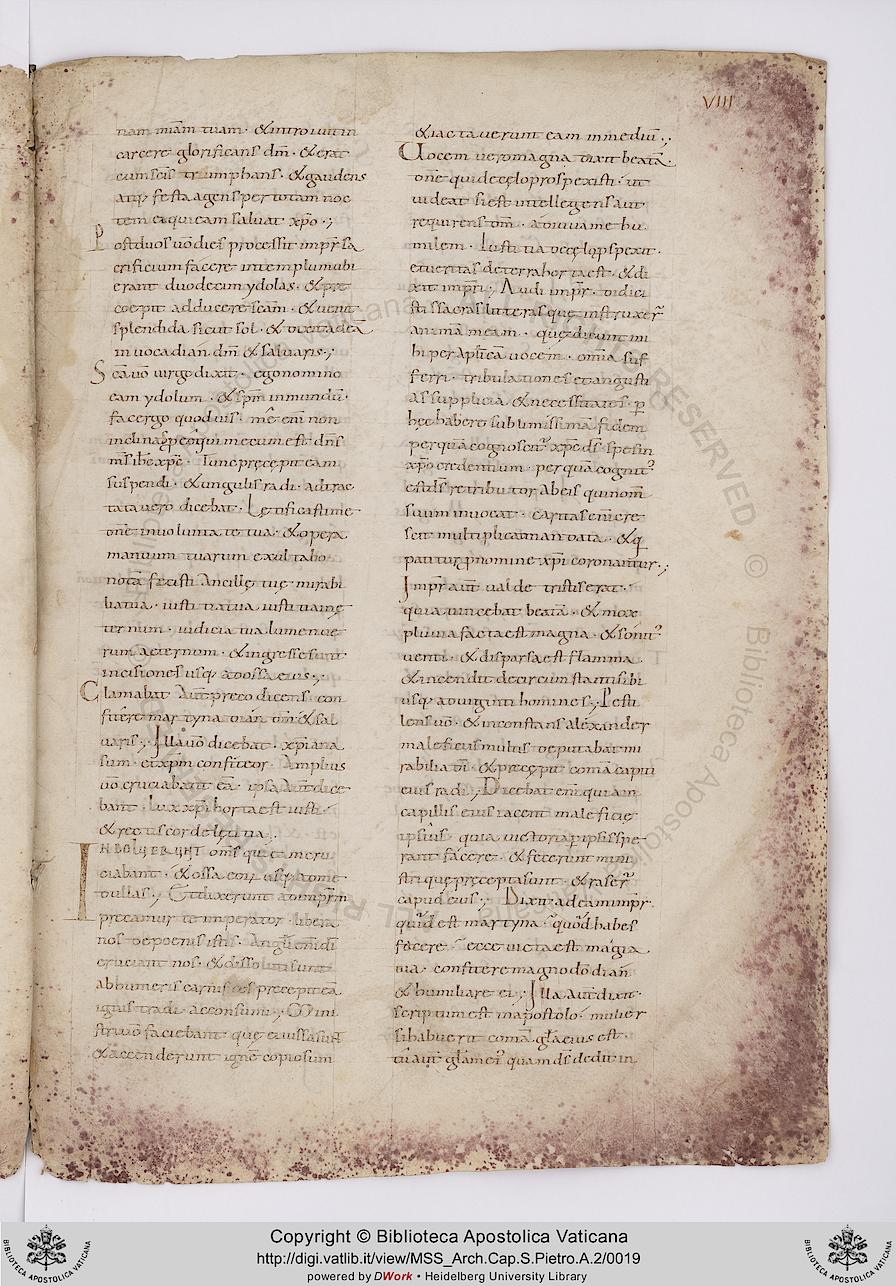 VIII
nam miam tuam · & introiuit in
carcere glorificans dm̄ · & erat
cum scīs triumphans · & gaudens
atq; festa agens per totam noc
tem ei qui eam saluat xp̄o ·;
Post duos uō dies processit imp̄r sa
crificium facere in templum ubi
erant duodecim ydolas · & pre
coepit adducere scām · & uenit
splendida sicut sol · & dixit ad eā
inuoca dian̄ dm̄ & saluaris ·;
Scā uō uirgo dixit · ego nomino
eam ydolum · & sp̄m inmundū ·
fac ergo quod uis · me enī non
inclinas
ms̄ ih̄s xp̄c · Tunc precepit eam
suspendi · & ungulis radi · ad trac
tata uero dicebat · Letificasti me
dn̄e in uoluntate tua · & opera
manuum tuarum exultabo
nota fecisti ancille tue · mirabi
lia tua · iusti tia tua iusti tia in ę
ternum · iudicia tua lumen ue
rum aeternum · & ingresse sunt
incisiones usq; ad ossa eius ·;
Clamabat aut̄ preco dicens · con
fitere martyna dian̄ dm̄ & sal
uaris ·; Illa uō dicebat · xp̄iana
sum · et xp̄m confiteor · Amplius
uō cruciabant eā · ipsa aut̄ dice
bat · Lux xp̄i horta est iusti
& rectis corde lętitia ·;
INBOLVEBANT om̄s qui eam cru
ciabant · & ossa eor̄ usq; ad me
dullas ·; Et dixerunt ad imp̄rm
precamur te imperator · libera
nos de poenis istis · Angli enī dī
cruciant nos · & dissoluti sunt
ab humeris carnis · precepit eā
ignis tradi ac consumi ·; Mini
stri uō faciebant que eis iussa sunt
& accenderunt ignē copiosum
& iactauerunt eam in mediū ·;
Uocem uero magna dixit beata
dn̄e qui de cęlo prospexisti · ut
uideat si est intellegens aut
requirens dm̄ · adiuua me hu
milem · Iustitia de cęlo pspexit ·
et ueritas de terra horta est · & di
xit imp̄ri · Audi imp̄r · didici
sti ssacras litteras quę instruxer̄
animā meam · quę dicunt mi
hi per aposticā uocem · omīa suf
ferri · tribulationes et angusti
as supplicia & necessitates · p
hęc habere sublimissimā fidem
per quā cognoscent̄ xp̄e ds̄ spes in
xp̄o credentium · per quā cognit
es
suum inuocat · caritas enī cre
scit multiplicatnan data · & q
patitur p nomine xp̄i coronantur ·;
Imp̄r aut̄ ualde tristis erat ·
quia uincebat beata · & mox
pluuia facta est magna · & sonit
uenti · & disparsa est flamma ·
& incendit de circum stantibus ibi
usq; ad uiginti homines ·; Pesti
lens uō · & inconstans alexander
maleficiis multis deputabat mi
rabilia dī · & precepit comā capiti
eius radi ·; Dicebat enī quia in
capillis eius iacent maleficię
ipsius · quia uictoria p ipsis spe
rant facere · & fecerunt mini
stri que precepta sunt · & raser̄
caput eius ·; Dixit ad eam imp̄r ·
quid est martyna · quod habes
facere · ecce uicta est magia
tua · confitere magno dō dian̄
& humiliare ei ·; Illa aut̄ dixit ·
scriptum est in apostolo · mulier
si habuerit comā glā eius est ·
tu aut̄ glām ei quam ds̄ dedit in
Copyright © Biblioteca Apostolica Vaticana
http://digi.vatlib.it/view/MSS_Arch.Cap.S.Pietro.A.2/0019
powered by DWork • Heidelberg University Library
BIBLIOTECA APOSTOLICA VATICANA
BIBLIOTECA APOSTOLICA VATICANA